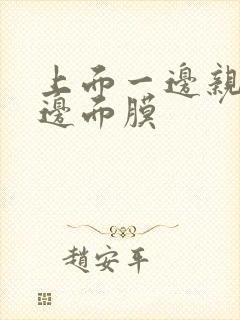 上而一邊親
邊而膜
趙安平